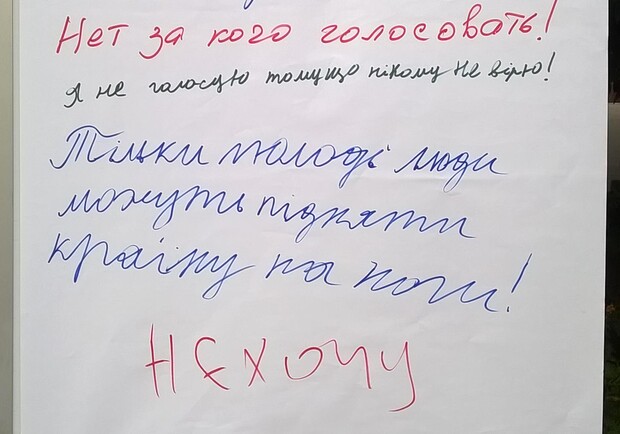 Нет за кого голосовать!
Я не голосую томущо нікому не вірю!
Тільки молоді люди
можуть підняти
країну на ноги!
НЄХОЧУ